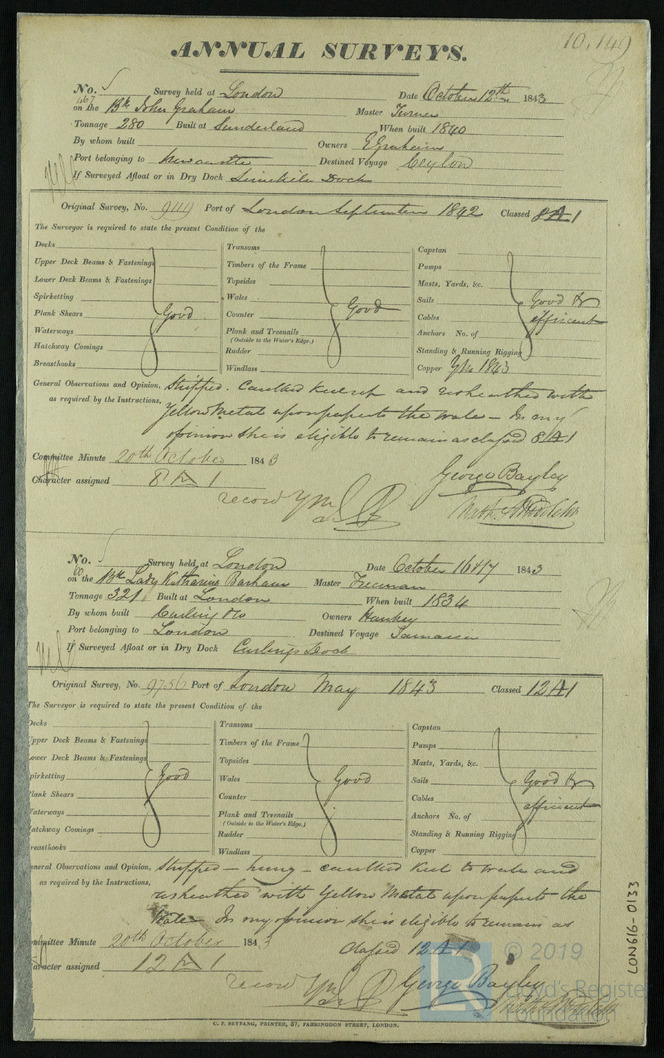 10,149
ANNUAL SURVEYS.
No. Survey held at London Date October 12th 1843
on the Bk John Graham Master Turner
Tonnage 280 Built at Sunderland When built 1840
By whom built Owners
Port belonging to Newcastle Destined Voyage Ceylon
If Surveyed Afloat or in Dry Dock Limekiln Dock
Original Survey, No. Port of London September 1842 Classed 8A1
The Surveyor is required to state the present Condition of the
Decks
Upper Deck Beams & Fastenings
Lower Deck Beams & Fastenings
Spirketting
Plank Shears Good
Waterways
Hatchway Comings
Breasthooks
Transoms
Timbers of the Frame
Topsides
Wales
Counter Good
Plank and Treenails
(Outside to the Water's Edge.)
Rudder
Windlass
Capstan
Pumps
Masts, Yards, &c.
Sails Good &
Cables efficient
Anchors No. of
Standing & Running Rigging
Copper 1843
General Observations and Opinion, Stripped. Caulked and resheathed with
as required by the Instructions, Yellow Metal upon paper to the wale – In my
opinion she is eligible to remain as classed 8A1
Committee Minute 20th October 1843
Character assigned 8 A 1
George Bayley
record YM
No. Survey held at London Date October 16 & 17 1843
on the Bk Lady Katharine Barham Master Freeman
Tonnage 321 Built at London When built 1834
By whom built Curling & Co Owners Hankey
Port belonging to London Destined Voyage Jamaica
If Surveyed Afloat or in Dry Dock Curlings Dock
Original Survey, No. 9756 Port of London May 1843 Classed 12A1
The Surveyor is required to state the present Condition of the
Decks
Upper Deck Beams & Fastenings
Lower Deck Beams & Fastenings
Spirketting Good
Plank Shears
Waterways
Hatchway Comings
Breasthooks
Transoms
Timbers of the Frame
Topsides
Wales Good
Counter
Plank and Treenails
(Outside to the Water's Edge.)
Rudder
Windlass
Capstan
Pumps
Masts, Yards, &c.
Sails Good &
Cables efficient
Anchors No. of
Standing & Running Rigging
Copper
General Observations and Opinion, Stripped – hung – caulked keel to wale and
as required by the Instructions, resheathed with Yellow Metal upon paper to the
Wale – In my opinion she is eligible to remain as
classed 12 A 1
Committee Minute 20th October 1843
Character assigned 12 A 1
George Bayley
record YM
C. F. SEYFANG, PRINTER, 57, FARRINGDON STREET, LONDON.
LON616-0133
© 2019
Lloyd's Register
Foundation